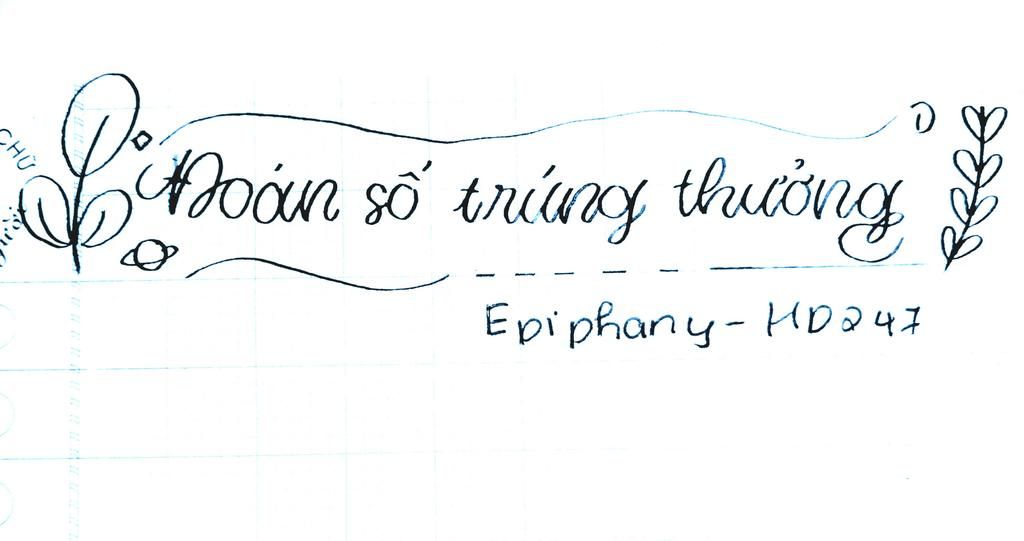 CHỮ
Đoán số trúng thưởng
Epiphany - HD247